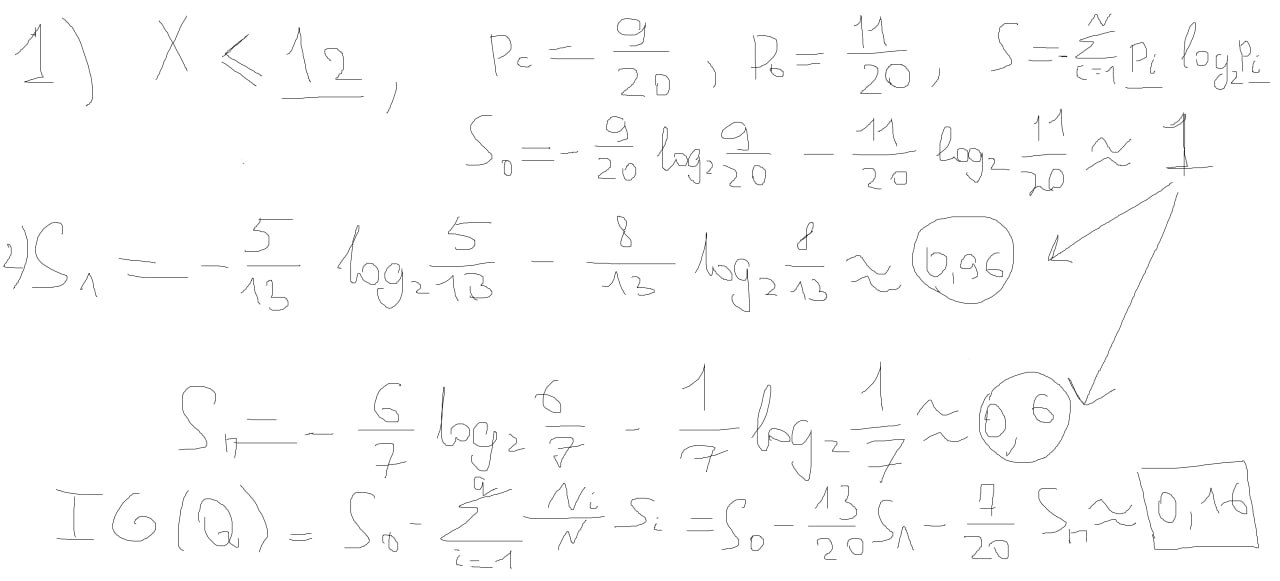 1) X ≤ 12, Pc = 9/20, Pб = 11/20, S = -∑_{i=1}^{N} p_i log₂ p_i
S₀ = - 9/20 log₂ 9/20 - 11/20 log₂ 11/20 ≈ 1
2) Sл = - 5/13 log₂ 5/13 - 8/13 log₂ 8/13 ≈ 0,96
Sп = - 6/7 log₂ 6/7 - 1/7 log₂ 1/7 ≈ 0,6
IG(Q) = S₀ - ∑_{i=1}^{q} Ni/N Si = S₀ - 13/20 Sл - 7/20 Sп ≈ 0,16